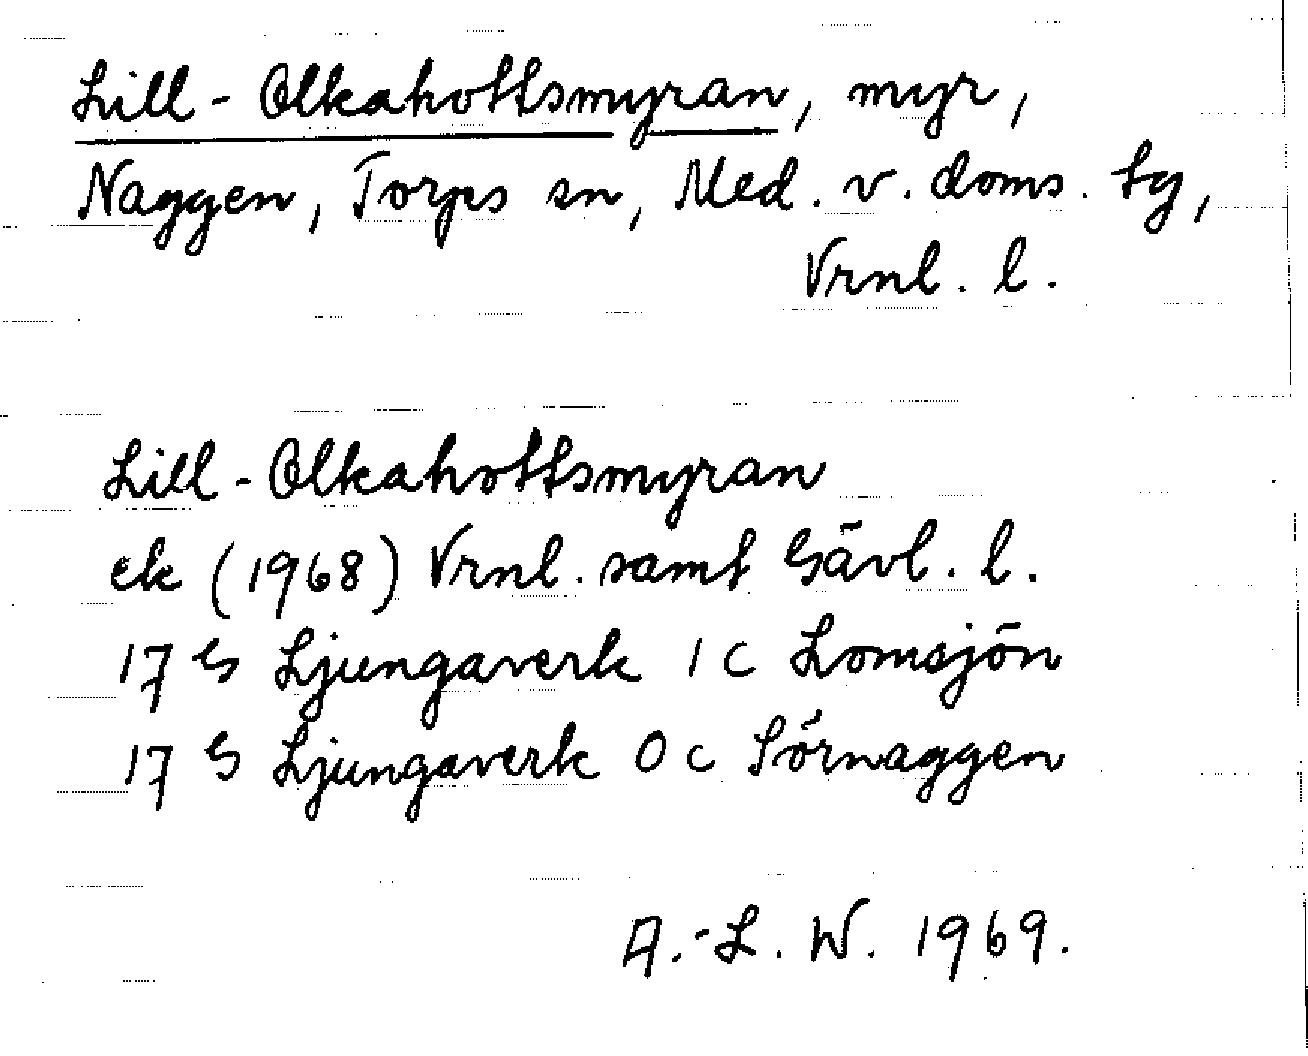 Lill-Olkahottsmyran, myr,
Naggen, Torps sn, Med. v. doms. tg,
Vrnl. l.
Lill-Olkahottsmyran
ek (1968) Vrnl. samt Gävl. l.
17 G Ljungaverk 1 c Lomsjön
17 G Ljungaverk 0 c Sörnaggen
A.-L. W. 1969.